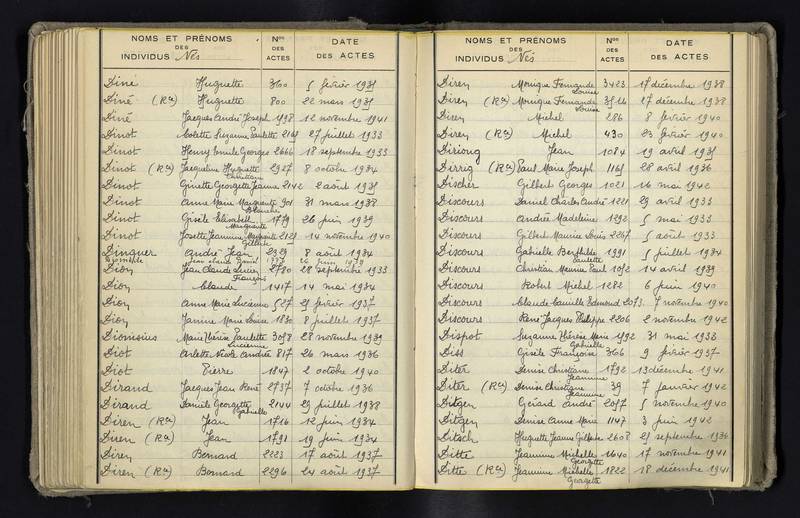 NOMS ET PRÉNOMS
DES
INDIVIDUS Nés
Nos
DES
ACTES
DATE
DES ACTES
Diné Huguette 360 5 février 1931
Diné (Ra) Huguette 800 22 mars 1931
Diné Jacques André Joseph 1198 12 novembre 1941
Dinot Colette Suzanne Paulette 27 juillet 1933
Dinot Henry Emile Georges 2666 18 septembre 1933
Dinot (Ra) Jacqueline Huguette 2927 8 octobre 1934
Christiane
Dinot Ginette Georgette Jeanne 2142 2 août 1935
Dinot Anne Marie Marguerite 901 31 mars 1938
Blanche
Dinot Gisèle Elisabeth 1779 26 juin 1939
Marguerite
Dinot Josette Jeannine Marguerite 14 novembre 1940
Gilberte
Dinguer André Jean 2229 8 août 1934
26 juin 1939
Dion Jean Claude Lucien 2780 28 septembre 1933
François
Dion Claude 1417 14 mai 1934
Dion Anne Marie Lucienne 527 25 février 1937
Dion Janine Marie Louise 1830 8 juillet 1937
Dionisius Marie Thérèse Paulette 3098 28 novembre 1939
Lucienne
Diot Arlette Nicole Andrée 817 26 mars 1936
Diot Pierre 1847 2 octobre 1940
Dirand Jacques Jean René 2737 7 octobre 1936
Dirand Danielle Georgette 2144 29 juillet 1938
Gabrielle
Diren (Ra) Jean 1716 12 juin 1934
Diren (Ra) Jean 1791 19 juin 1934
Diren Bernard 2223 17 août 1937
Diren (Ra) Bernard 2296 24 août 1937
NOMS ET PRÉNOMS
DES
INDIVIDUS Nés
Nos
DES
ACTES
DATE
DES ACTES
Diren Monique Fernande 3423 17 décembre 1938
Louise
Diren (Ra) Monique Fernande 3514 27 décembre 1938
Louise
Diren Michel 286 8 février 1940
Diren (Ra) Michel 430 23 février 1940
Diriong Jean 1084 19 avril 1935
Dirrig (Ra) Paul Marie Joseph 1165 28 avril 1936
Discher Gilbert Georges 1021 16 mai 1942
Discours Daniel Charles André 1221 29 avril 1933
Discours André Madeleine 1292 5 mai 1933
Discours Gilbert Maurice Louis 2267 5 août 1933
Discours Gabrielle Berthilde 1991 5 juillet 1934
Paulette
Discours Christian Maurice Paul 1052 14 avril 1939
Discours Robert Michel 1282 6 juin 1940
Discours Claude Camille Edmond 2073 7 novembre 1940
Discours René Jacques Philippe 2206 2 novembre 1942
Dispot Suzanne Thérèse Marie 1792 31 mai 1938
Gabrielle
Diss Gisèle Françoise 366 9 février 1937
Diter Denise Christiane 1792 13 décembre 1941
Jeannine
Diter (Ra) Denise Christiane 39 7 janvier 1942
Jeannine
Ditgen Gérard André 2077 5 novembre 1940
Ditgen Denise Anne Marie 1147 3 juin 1942
Ditsch Huguette Jeanne Gilberte 2608 25 septembre 1936
Ditte Jeannine Michelle 1640 17 novembre 1941
Georgette
Ditte (Ra) Jeannine Michelle 1822 18 décembre 1941
Georgette